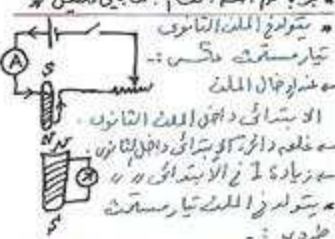 * يتولد في الملف الثانوى
تيار مستحث عكسى :-
← عند إدخال الملف
الابتدائى داخل الملف الثانوى .
← غلق دائرة الابتدائى داخل الثانوى .
← زيادة I في الابتدائى " "
* يتولد في الملف تيار مستحث
طردى :-
A
S
N
N
S